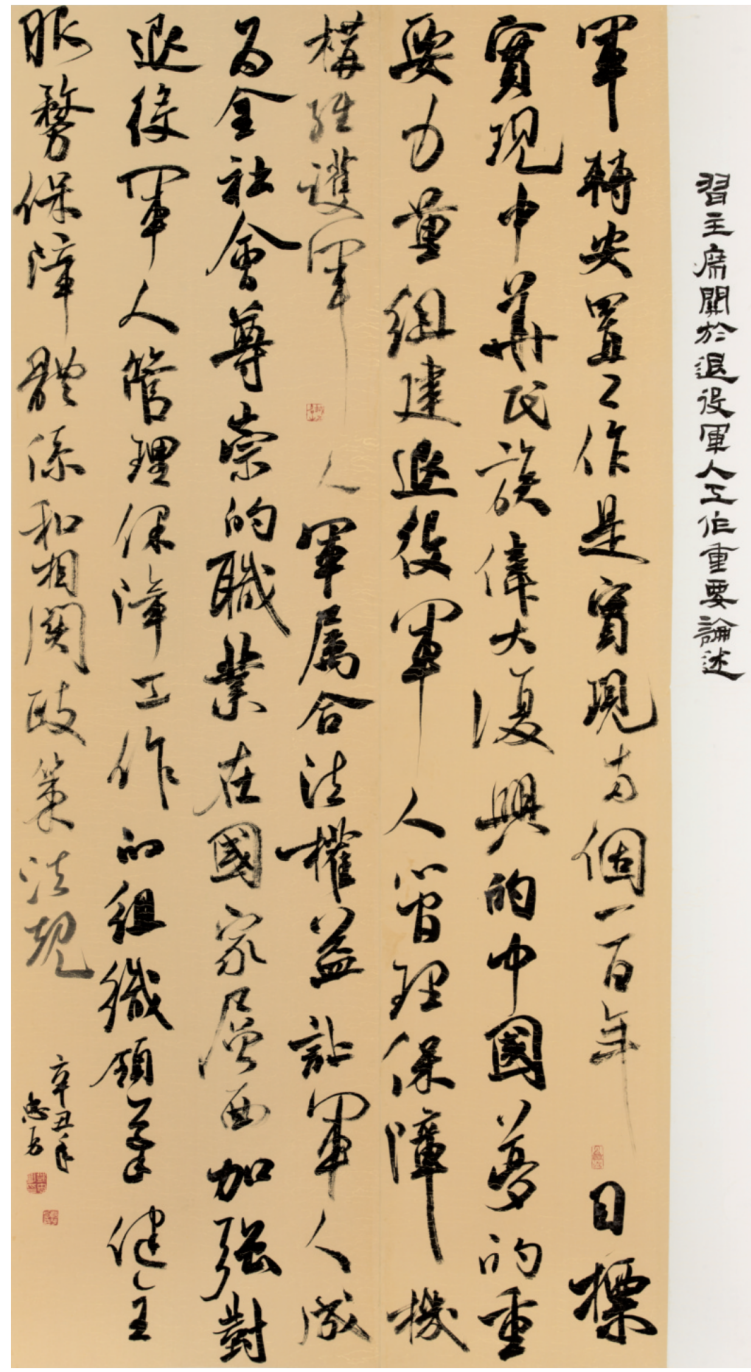 習主席關於退役軍人工作重要論述
軍轉安置工作是實現兩個一百年目標
實現中華民族偉大復興的中國夢的重
要力量組建退役軍人管理保障機
構維護軍人軍属合法權益讓軍人成
為全社會尊崇的職業在國家層面加强對
退役軍人管理保障工作的組織領導健全
服務保障體係和相關政策法規
辛丑年